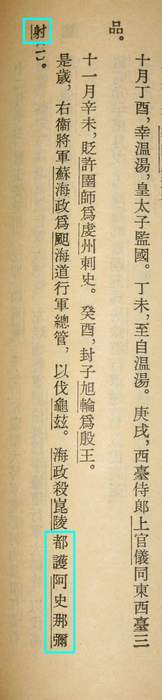 十月丁酉，幸溫湯，皇太子監國。丁未，至自溫湯。庚戌，西臺侍郎上官儀同東西臺三
品。
十一月辛未，貶許圉師爲虔州刺史。癸酉，封子旭輪爲殷王。
是歲，右衞將軍蘇海政爲𩗗海道行軍總管，以伐龜玆。海政殺崑陵都護阿史那彌
射